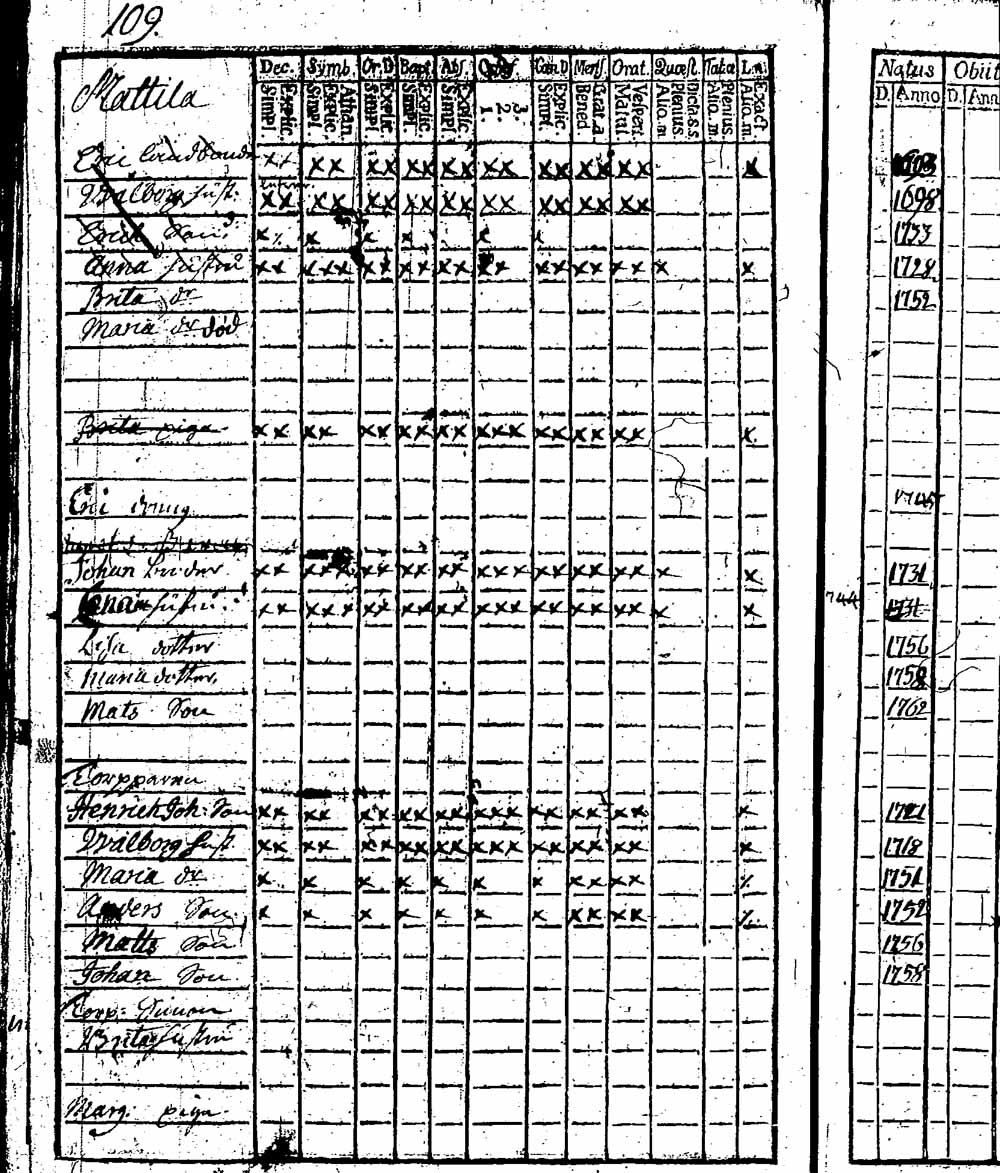 109.
Mattila
Dec. Symb. Or. D Bapt. Abs. Can D Mens. Orat. Quæst. Tabla L. n.
Explic. Simpl. Athan. Explic. Simpl. Explic. Simpl. Explic. Simpl. Explic. Simpl. 3. 2. 1. Explic. Simpl. Grat. a Bened Vespert. Matut. Dict. s. s. Plenius. Alio. m. Plenius. Alio. m. Exact Alio. m.
Natus Obiit
D. Anno D.
Eric xx xx xx xx xx xx xx xx xx x
Walborg hust. xx xx xx xx xx xx xx xx xx 1698
Erik Son x x x x x 1733
Anna hustru xx xxx xx xx xx xx xx xx xx x x 1728
Brita dr 1752
Maria dr död
Brita piga xx xx xx xx xx xxx xx xx xx x
Eric dräng 1745
Johan xx xxx xx xx xx xxx xx xx xx x x 1731
hustru xx xxx xx xx xx xxx xx xx xx x x 744 1731
Lisa dotter 1756
Maria dotter 1758
Mats Son 1762
Torpparen
Henrich Joh: Son xx xx xx xx xx xxx xx xx xx x 1721
Walborg hust. xx xx xx xx xx xxx xx xx xx x 1718
Maria dr x x x x x x x xx xx 1751
Anders Son x x x x x x x xx xx 1752
Matts Son 1756
Johan Son 1758
Torp: Simon
Brita hustru
Marg. piga